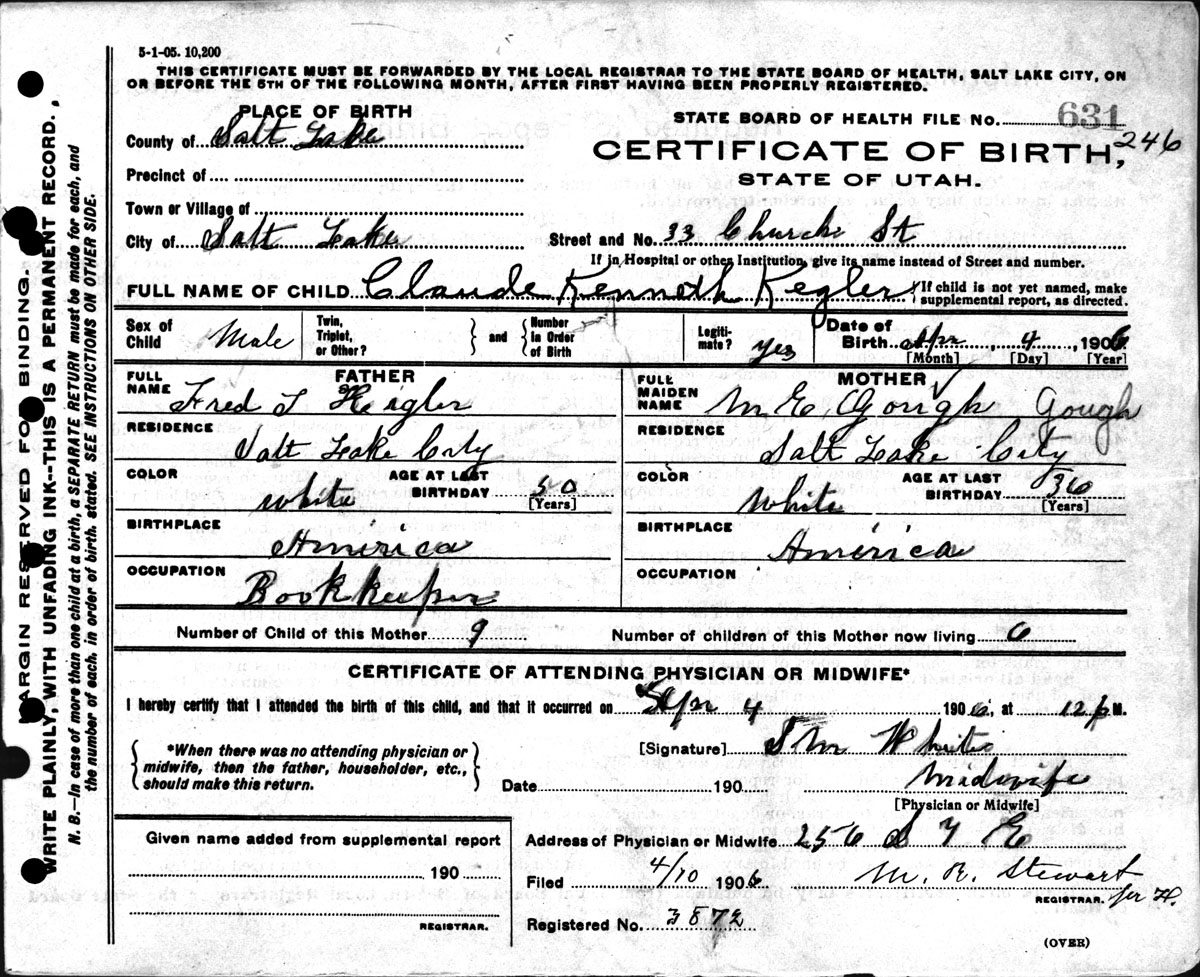 5-1-05. 10,200
THIS CERTIFICATE MUST BE FORWARDED BY THE LOCAL REGISTRAR TO THE STATE BOARD OF HEALTH, SALT LAKE CITY, ON
OR BEFORE THE 5TH OF THE FOLLOWING MONTH, AFTER FIRST HAVING BEEN PROPERLY REGISTERED.
PLACE OF BIRTH
County of Salt Lake
Precinct of
Town or Village of
City of Salt Lake
STATE BOARD OF HEALTH FILE No. 631
246
CERTIFICATE OF BIRTH,
STATE OF UTAH.
Street and No. 33 Church St
If in Hospital or other Institution, give its name instead of Street and number.
FULL NAME OF CHILD Claude Kenneth Kegler { If child is not yet named, make
supplemental report, as directed.
Sex of Child Male
Twin, Triplet, or Other?
} and { Number In Order of Birth
Legiti-mate? yes
Date of Birth Apr, 4, 1906
[Month] [Day] [Year]
FATHER
FULL NAME Fred T Kegler
RESIDENCE Salt Lake City
COLOR white AGE AT LAST BIRTHDAY 50 [Years]
BIRTHPLACE America
OCCUPATION Bookkeeper
MOTHER
FULL MAIDEN NAME M E Gough Gough
RESIDENCE Salt Lake City
COLOR White AGE AT LAST BIRTHDAY 36 [Years]
BIRTHPLACE America
OCCUPATION
Number of Child of this Mother 9 Number of children of this Mother now living 6
CERTIFICATE OF ATTENDING PHYSICIAN OR MIDWIFE*
I hereby certify that I attended the birth of this child, and that it occurred on Apr 4 1906, at 12 p M.
{ *When there was no attending physician or
midwife, then the father, householder, etc.,
should make this return. }
[Signature] S M White
Date 190 Midwife
[Physician or Midwife]
Given name added from supplemental report
190
REGISTRAR.
Address of Physician or Midwife 256 S 7 E
Filed 4/10 1906 M. R. Stewart
REGISTRAR. per H.
Registered No. 3872
(OVER)
MARGIN RESERVED FOR BINDING.
WRITE PLAINLY, WITH UNFADING INK--THIS IS A PERMANENT RECORD.
N. B.—In case of more than one child at a birth, a SEPARATE RETURN must be made for each, and
the number of each, in order of birth, stated. SEE INSTRUCTIONS ON OTHER SIDE.